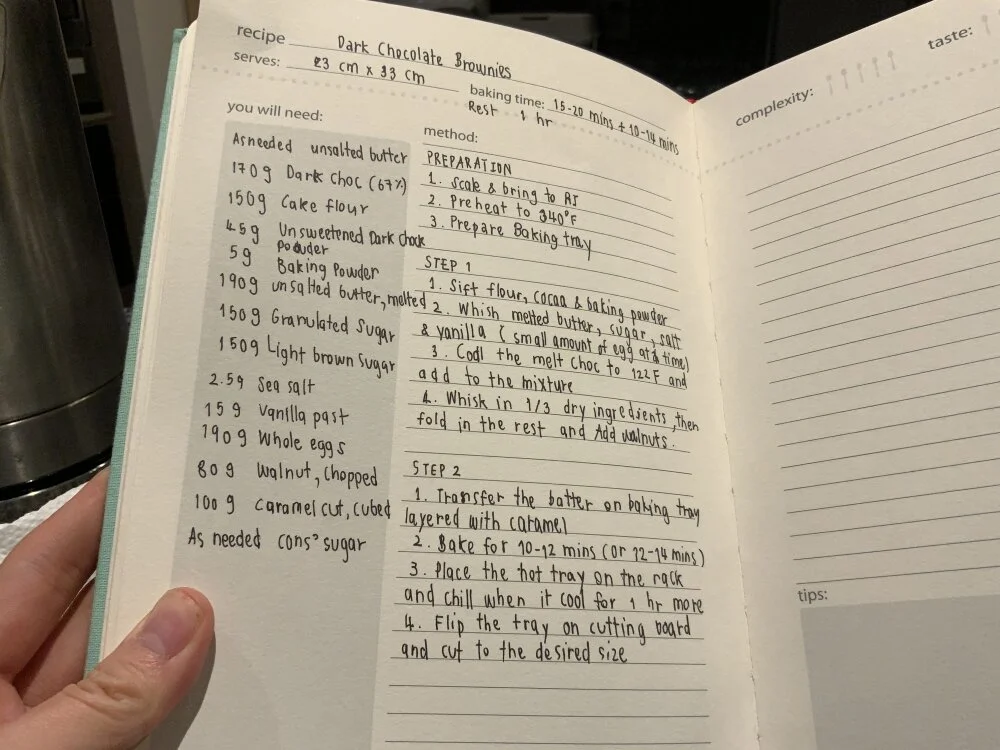 recipe Dark Chocolate Brownies
serves: 23 cm x 33 cm
baking time: 15-20 mins + 10-14 mins
Rest 1 hr
you will need:
As needed unsalted butter
170g Dark choc (67%)
150g Cake flour
45g Unsweetened Dark chock
Powder
5g Baking Powder
190g unsalted butter, melted
150g Granulated Sugar
150g Light brown sugar
2.5g Sea salt
15g Vanilla past
190g Whole eggs
80g Walnut, chopped
100g caramel cut, cubed
As needed cons' sugar
method:
PREPARATION
1. Scale & bring to
2. Preheat to 340°F
3. Prepare Baking tray
STEP 1
1. Sift flour, cocoa & baking powder
2. Whish melted butter, sugar, salt
& vanilla (small amount of egg at a time)
3. Cool the melt choc to 122F and
add to the mixture
4. Whisk in 1/3 dry ingredients, then
fold in the rest and Add walnuts.
STEP 2
1. Transfer the batter on baking tray
layered with caramel
2. Bake for 10-12 mins (or 12-14 mins)
3. Place the hot tray on the rack
and chill when it cool for 1 hr more
4. Flip the tray on cutting board
and cut to the desired size
complexity:
taste:
tips: